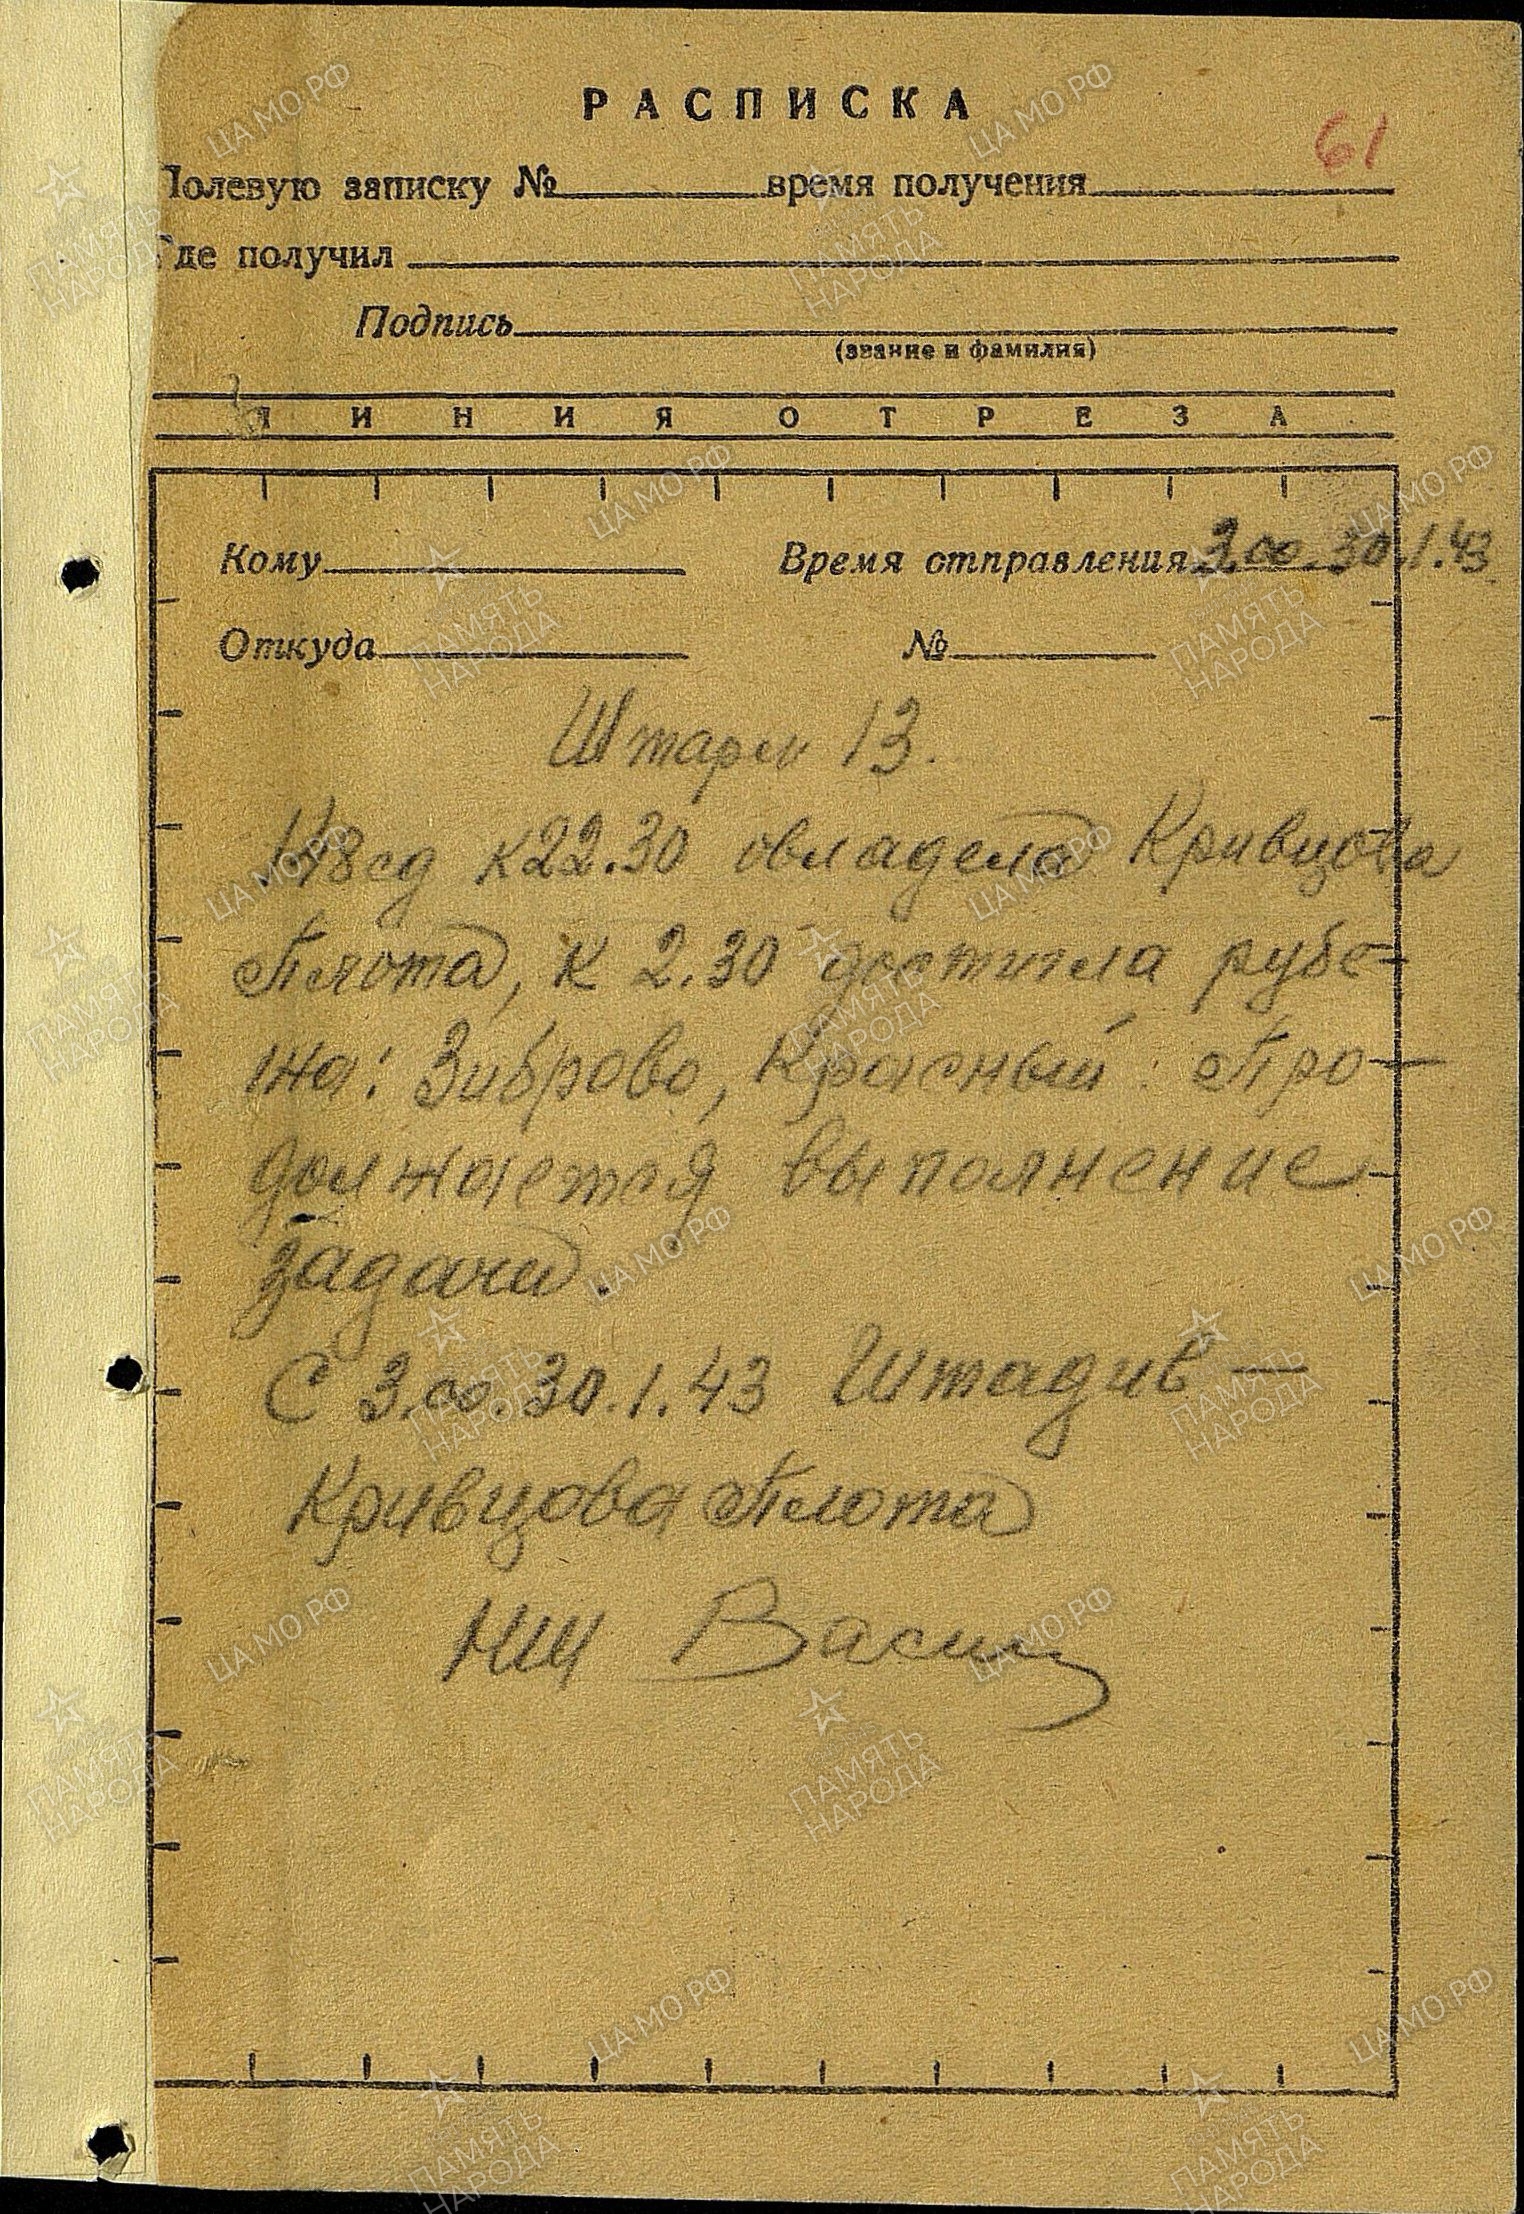 РАСПИСКА
61
Полевую записку № время получения
Где получил
Подпись
(звание и фамилия)
ЛИНИЯ ОТРЕЗА
Кому Время отправления 3.00. 30.1.43
Откуда №
Штарм 13.
148 сд к 22.30 овладела Кривцова
Плота, к 2.30 достигла рубе-
жа: Зиброво, Красный. Про-
должается выполнение
задачи.
С 3.00. 30.1.43 Штадив —
Кривцова Плота
НШ